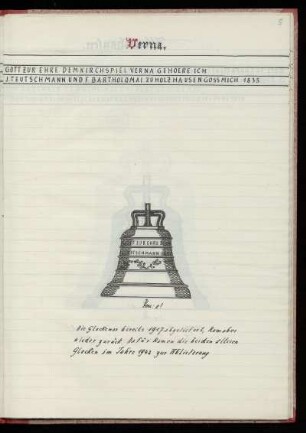 5
Verna.
GOTT ZUR EHRE DEM KIRCHSPIEL VERNA GEHOERE ICH
J. TEUTSCHMANN UND F. BARTHOLOMAI ZU HOLZHAUSEN GOSS MICH 1855
ZUR EHRE D
TSCHMANN
Die Glocke bereits 1917 abgeliefert, kam aber
wieder zurück. Dafür kamen die beiden älteren
Glocken im Jahre 1942 zur Ablieferung